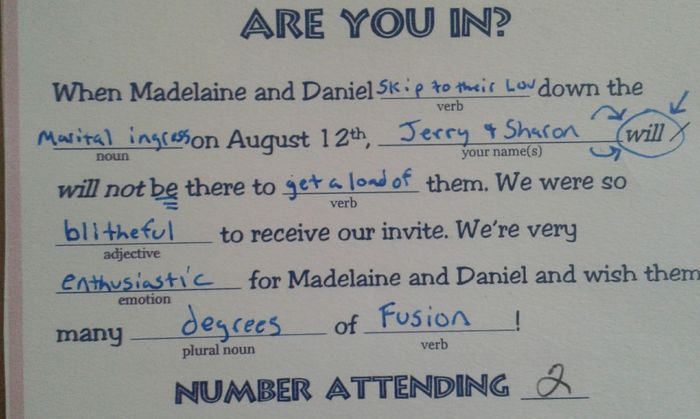 ARE YOU IN?
When Madelaine and Daniel Skip to their Lov down the
verb
Marital ingress on August 12th, Jerry & Sharon (will /
noun your name(s)
will not be there to get a load of them. We were so
verb
blitheful to receive our invite. We're very
adjective
enthusiastic for Madelaine and Daniel and wish them
emotion
many degrees of Fusion !
plural noun verb
NUMBER ATTENDING 2